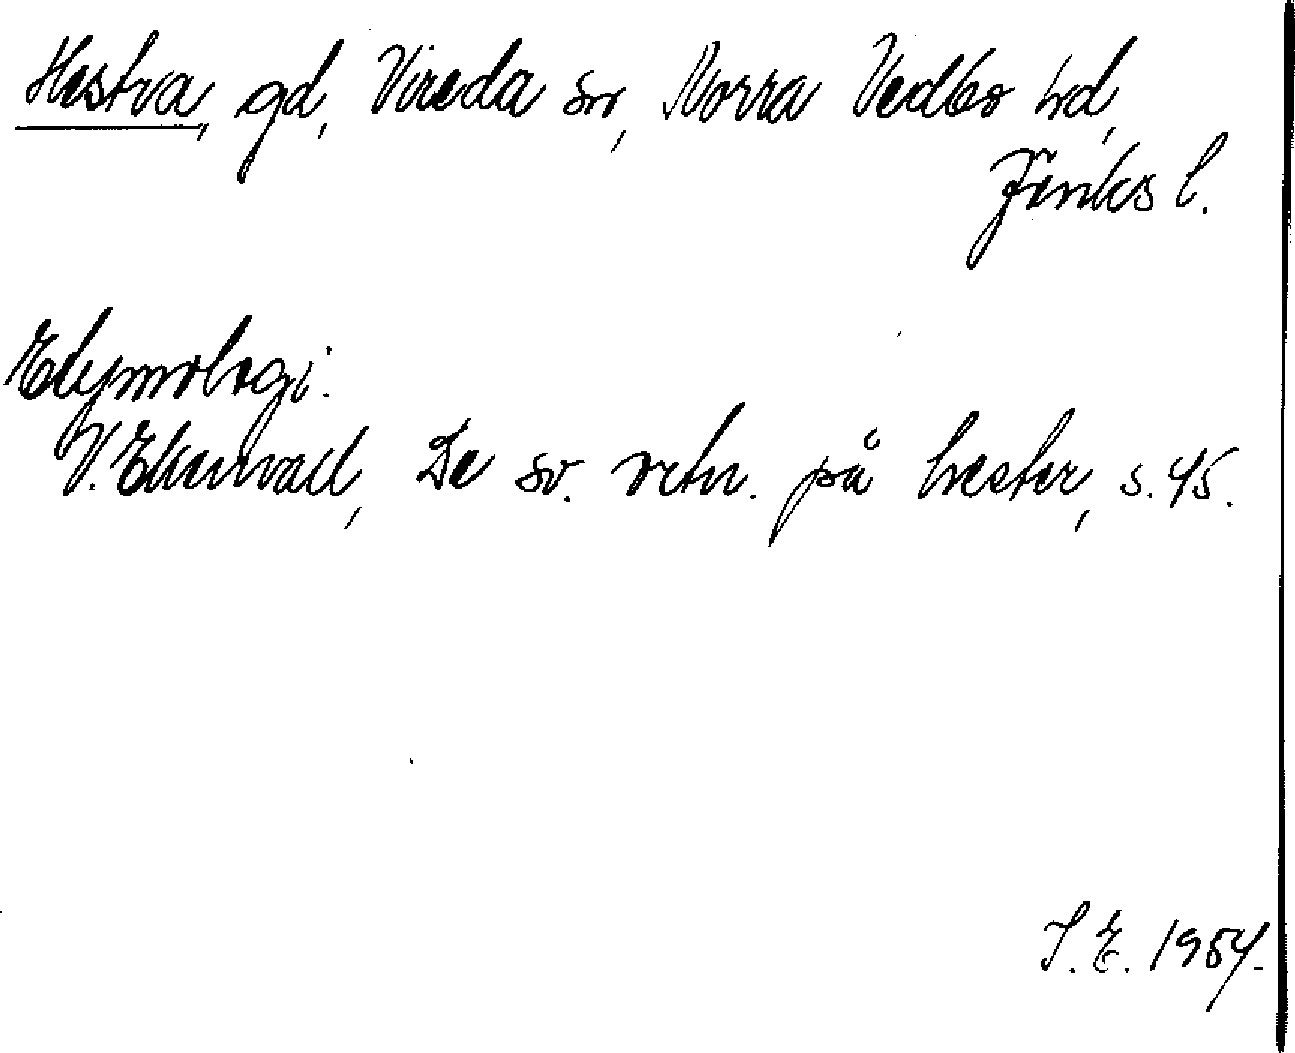 Hestra, gd, Vireda sn, Norra Vedbo hd,
Jönks l.
Etymologi:
V. Ekenvall, De sv. ortn. på hester, s. 45.
S. E. 1954.